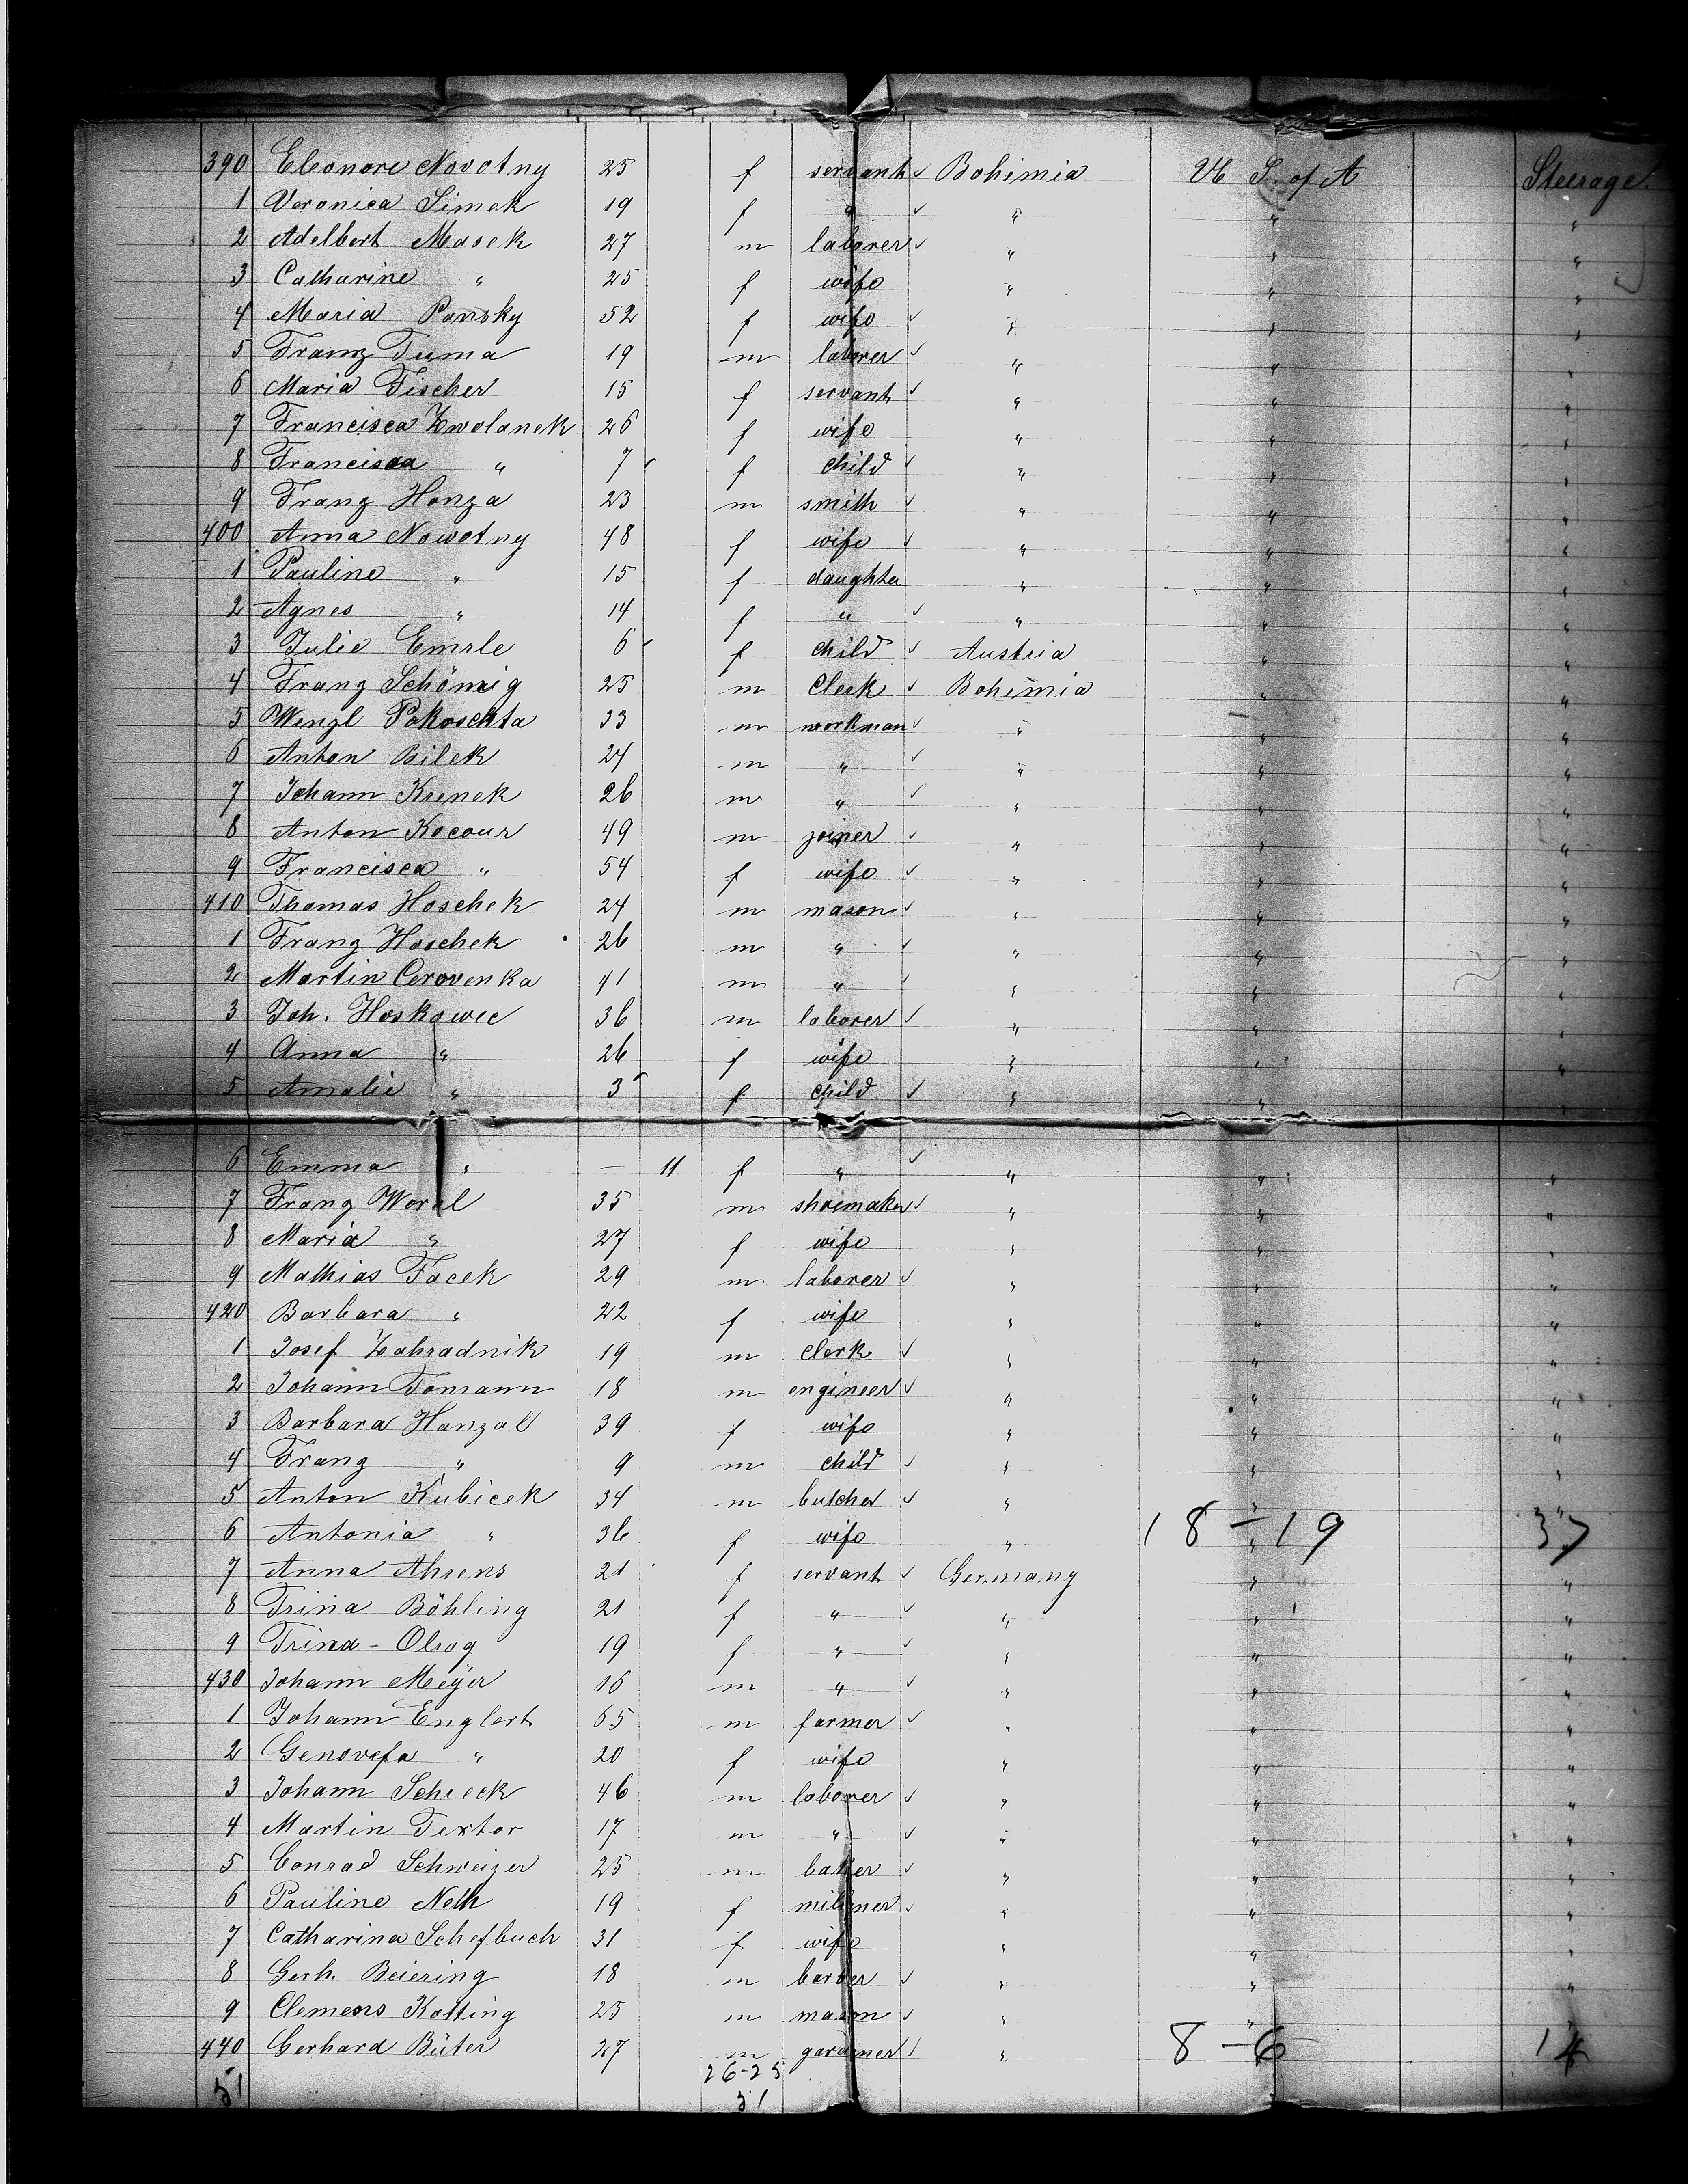 390 Eleonore Novotny 25 f servant ✓ Bohimia U S. of A Steerage.
1 Veronica Simek 19 f " ✓ " " "
2 Adelbert Masek 27 m laborer ✓ " " "
3 Catharine " 25 f wife " " "
4 Maria Pansky 52 f wife ✓ " " "
5 Franz Tuma 19 m laborer ✓ " " "
6 Maria Fischer 15 f servant ✓ " " "
7 Francisca Zwolanek 26 f wife " " "
8 Francisca " 7 f child ✓ " " "
9 Franz Honza 23 m smith ✓ " " "
400 Anna Nowotny 48 f wife ✓ " " "
1 Pauline " 15 f daughter " " "
2 Agnes " 14 f " ✓ " " "
3 Julie Emrle 6 f child ✓ Austria " "
4 Franz Schömig 25 m Clerk ✓ Bohemia " "
5 Wenzl Pokoschta 33 m workman ✓ " " "
6 Anton Bilek 24 m " ✓ " " "
7 Johann Krenek 26 m " ✓ " " "
8 Anton Kocour 49 m joiner ✓ " " "
9 Francisca " 54 f wife ✓ " " "
410 Thomas Hoschek 24 m mason ✓ " " "
1 Franz Hoschek 26 m " ✓ " " "
2 Martin Cerovenka 41 m " ✓ " " "
3 Joh. Hoskowec 36 m laborer ✓ " " "
4 Anna " 26 f wife " " "
5 Amalie " 3 f child ✓ " " "
6 Emma " — 11 f " ✓ " " "
7 Franz Woral 35 m shoemaker ✓ " " "
8 Maria " 27 f wife " " "
9 Mathias Facek 29 m laborer ✓ " " "
420 Barbara " 22 f wife " " "
1 Josef Zahradnik 19 m clerk ✓ " " "
2 Johann Tomann 18 m engineer ✓ " " "
3 Barbara Hanzal 39 f wife " " "
4 Franz " 9 m child ✓ " " "
5 Anton Kubicek 34 m butcher ✓ " " "
6 Antonia " 36 f wife " 18-19 37
7 Anna Ahrens 21 f servant ✓ Germany " "
8 Trina Böhling 21 f " ✓ " " "
9 Trina - Olrog 19 f " ✓ " " "
430 Johann Meÿer 16 m " ✓ " " "
1 Johann Englert 65 m farmer ✓ " " "
2 Genovefa " 20 f wife " " "
3 Johann Schreck 46 m laborer ✓ " " "
4 Martin Textor 17 m " ✓ " " "
5 Conrad Schweizer 25 m baker ✓ " " "
6 Pauline Noth 19 f milliner ✓ " " "
7 Catharina Schefbuch 31 f wife " " "
8 Gerh. Beiering 18 m barber ✓ " " "
9 Clemens Kotting 25 m mason ✓ " " "
440 Gerhard Büter 27 m gardener ✓ " 8-6 14
51 26-25
51